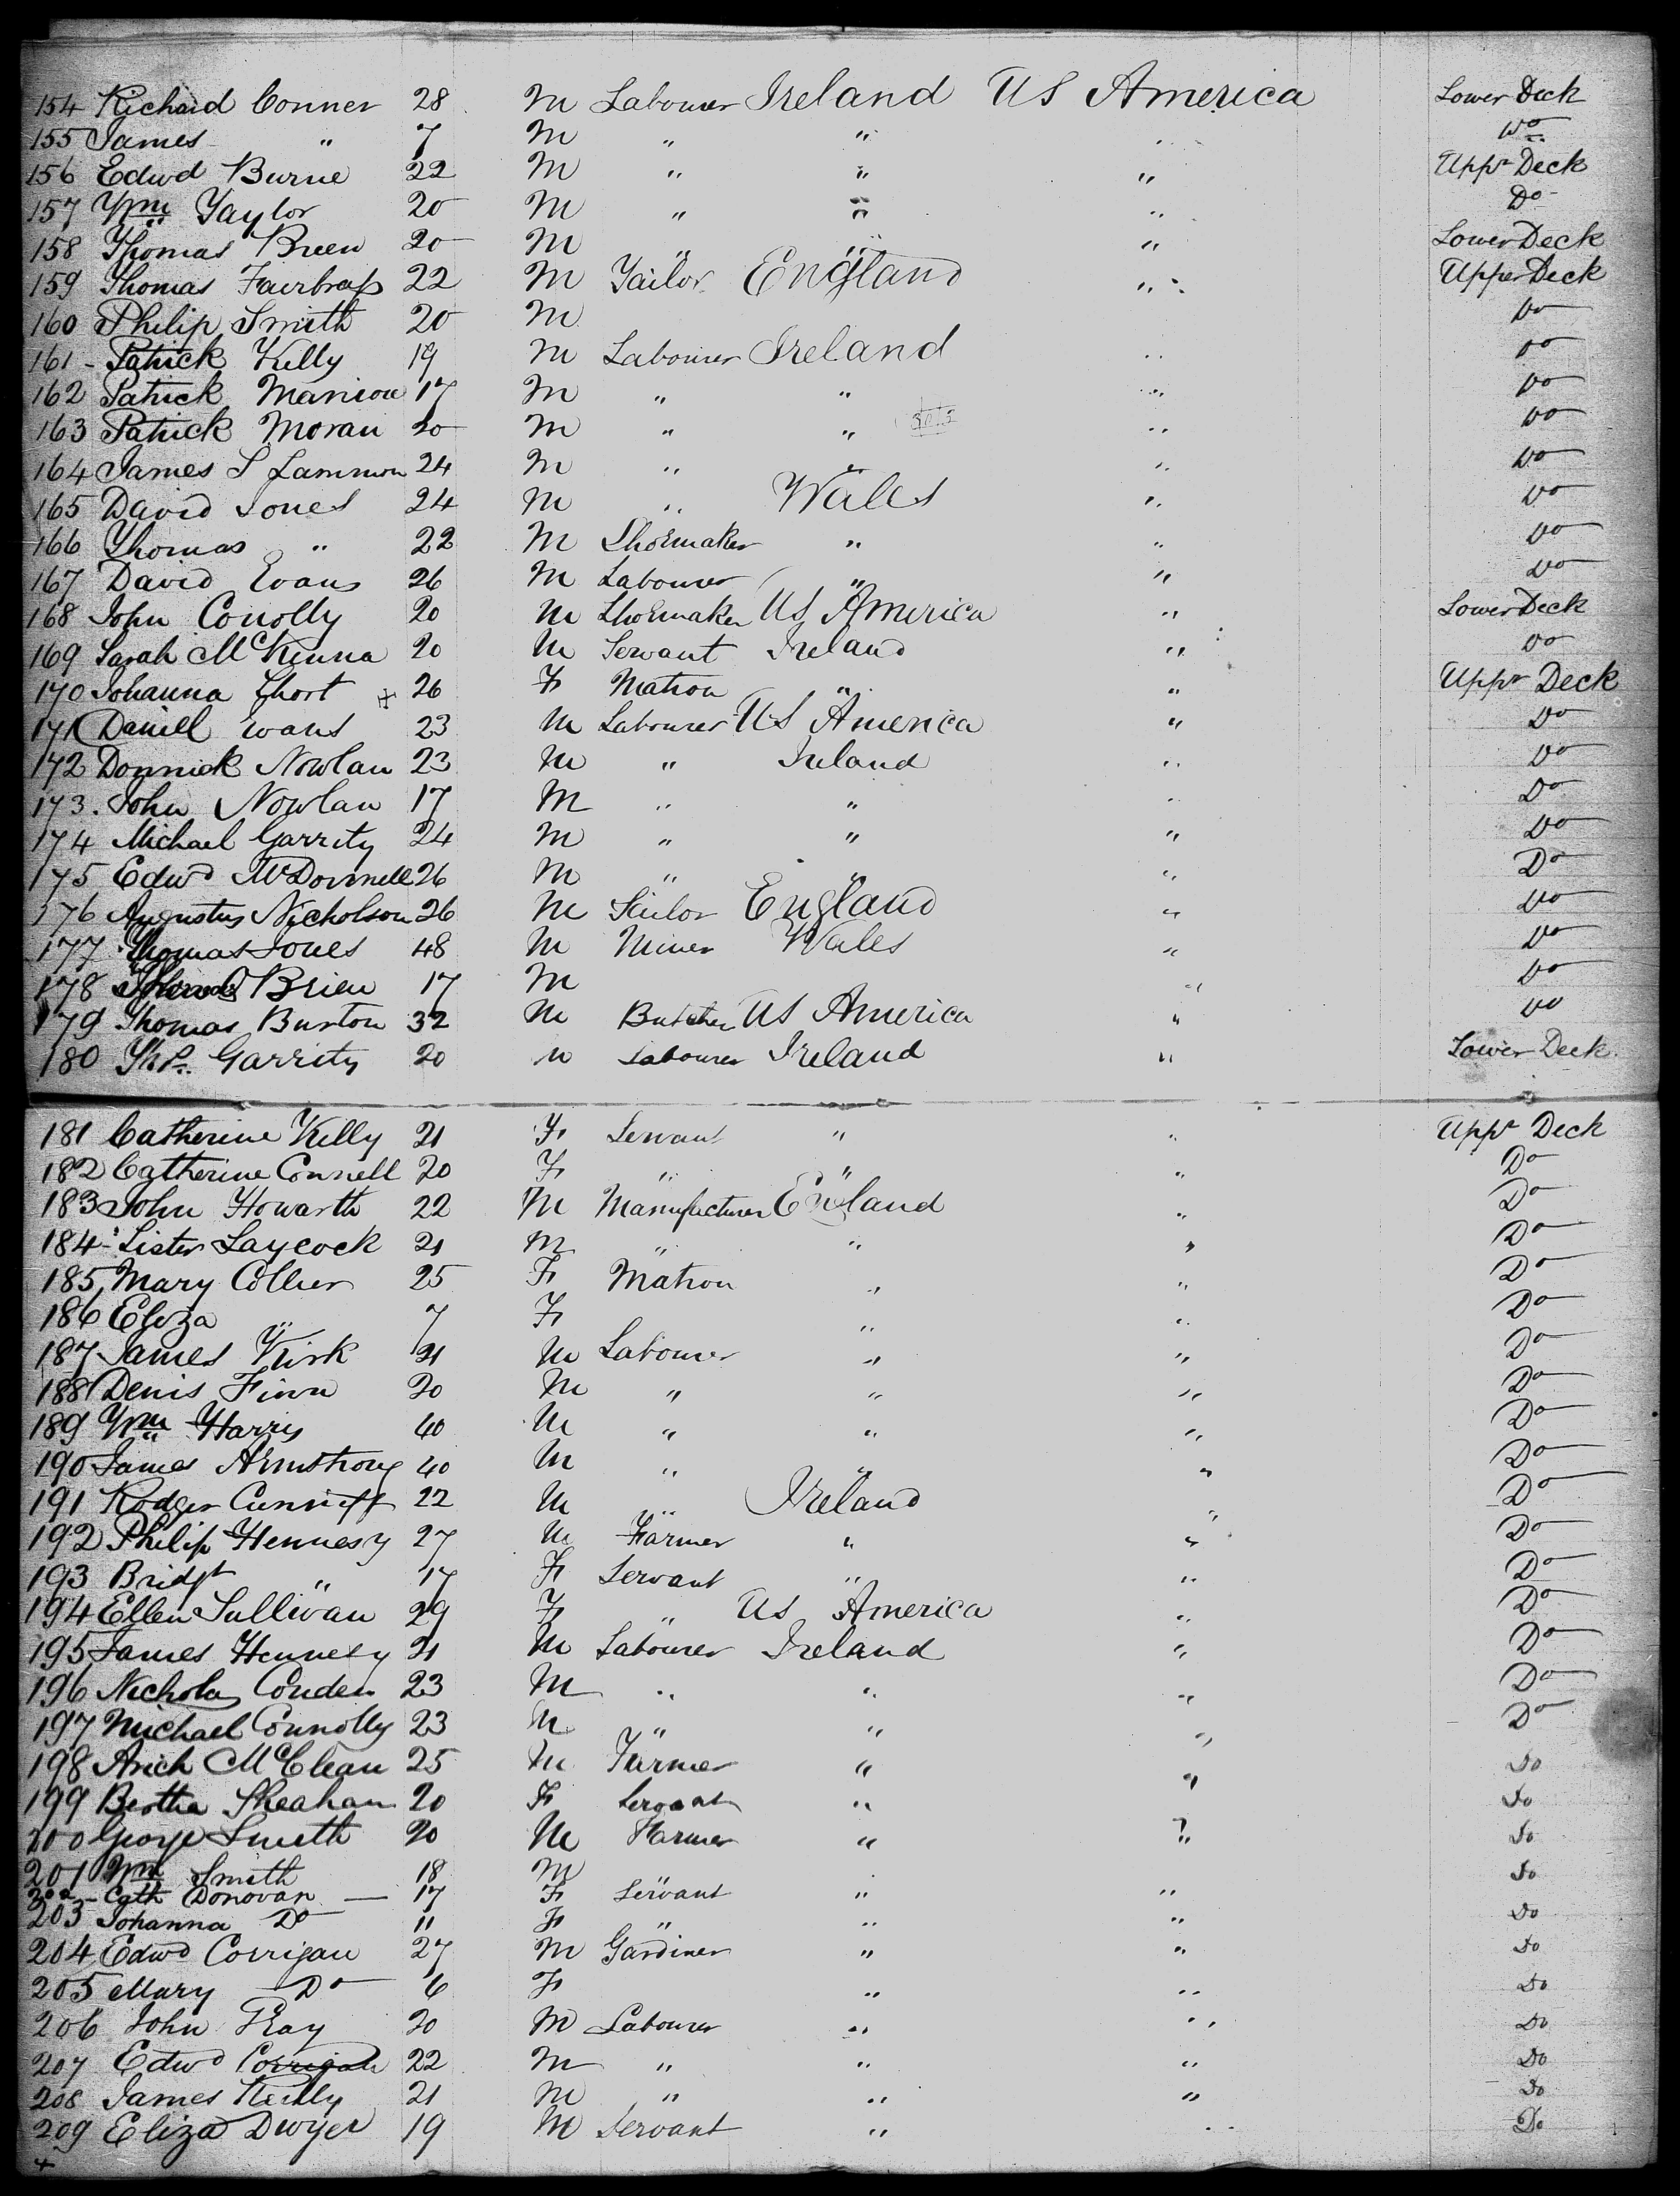 154 Richard Conner 28 M Labourer Ireland US America Lower Deck
155 James " 7 M " " " Do
156 Edwd Burne 22 M " " " Uppr Deck
157 Wm Taylor 20 M " " " Do
158 Thomas Breen 20 M " " " Lower Deck
159 Thomas Fairbrass 22 M Tailor England " Upper Deck
160 Philip Smith 20 M Do
161 Patrick Kelly 19 M Labourer Ireland " Do
162 Patrick Manion 17 M " " " Do
163 Patrick Moran 20 M " " " Do
164 James S Lammon 24 M " " " Do
165 David Jones 24 M " Wales " Do
166 Thomas " 22 M Shoemaker " " Do
167 David Evans 26 M Labourer " " Do
168 John Conolly 20 M Shoemaker US America " Lower Deck
169 Sarah McKinna 20 M Servant Ireland " Do
170 Johanna Short + 26 F Matron " " Uppr Deck
171 Daniell Evans 23 M Labourer US America " Do
172 Donnick Nowlan 23 M " Ireland " Do
173. John Nowlan 17 M " " " Do
174 Michael Garrity 24 M " " " Do
175 Edwd McDonnell 26 M " " " Do
176 Augustus Nicholson 26 M Sailor England " Do
177 Thomas Jones 48 M Miner Wales " Do
178 Brien 17 M " Do
179 Thomas Burton 32 M Butcher US America " Do
180 Ths. Garrity 20 M Labourer Ireland " Lower Deck
181 Catherine Kelly 21 F Servant " " Uppr Deck
182 Catherine Connell 20 F " " " Do
183 John Howarth 22 M Manufacturer England " Do
184 Lister Laycock 21 M " " " Do
185 Mary Collier 25 F Matron " " Do
186 Eliza " 7 F " " Do
187 James Kirk 21 M Labourer " " Do
188 Denis Finn 20 M " " " Do
189 Wm Harris 40 M " " " Do
190 James Armstrong 40 M " " " Do
191 Rodger Cunniff 22 M " Ireland " Do
192 Philip Hennesy 27 M Farmer " " Do
193 Bridgt " 17 F Servant " " Do
194 Ellen Sullivan 29 F " US America " Do
195 James Hennesy 21 M Labourer Ireland " Do
196 Nicholas Conden 23 M " " " Do
197 Michael Connolly 23 M " " " Do
198 Arich McClean 25 M Farmer " " Do
199 Bertha Sheahan 20 F Servant " " Do
200 George Smith 20 M Farmer " " Do
201 Wm Smith 18 M Do
202 - Cath Donovan — 17 F Servant " "
203 Johanna Do 11 F " " " Do
204 Edwd Corrigan 27 M Gardiner " " Do
205 Mary Do 6 F " " Do
206 John Ray 20 M Labourer " " Do
207 Edwd Corrigan 22 M " " " Do
208 James Reilly 21 M " " " Do
209 Eliza Dwyer 19 M Servant " " Do
+